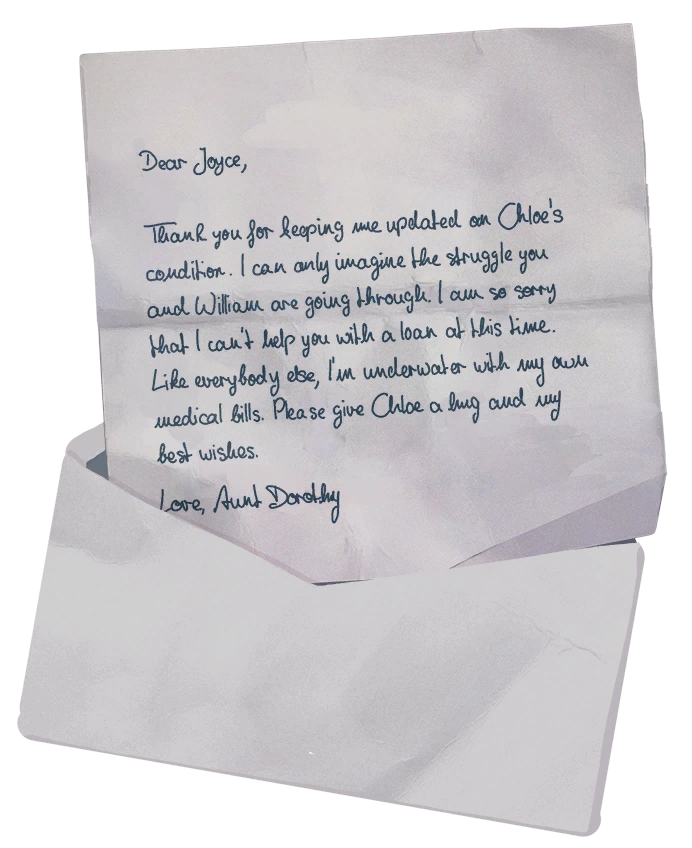 Dear Joyce,
Thank you for keeping me updated on Chloe's
condition. I can only imagine the struggle you
and William are going through. I am so sorry
that I can't help you with a loan at this time.
Like everybody else, I'm underwater with my own
medical bills. Please give Chloe a hug and my
best wishes.
Love, Aunt Dorothy